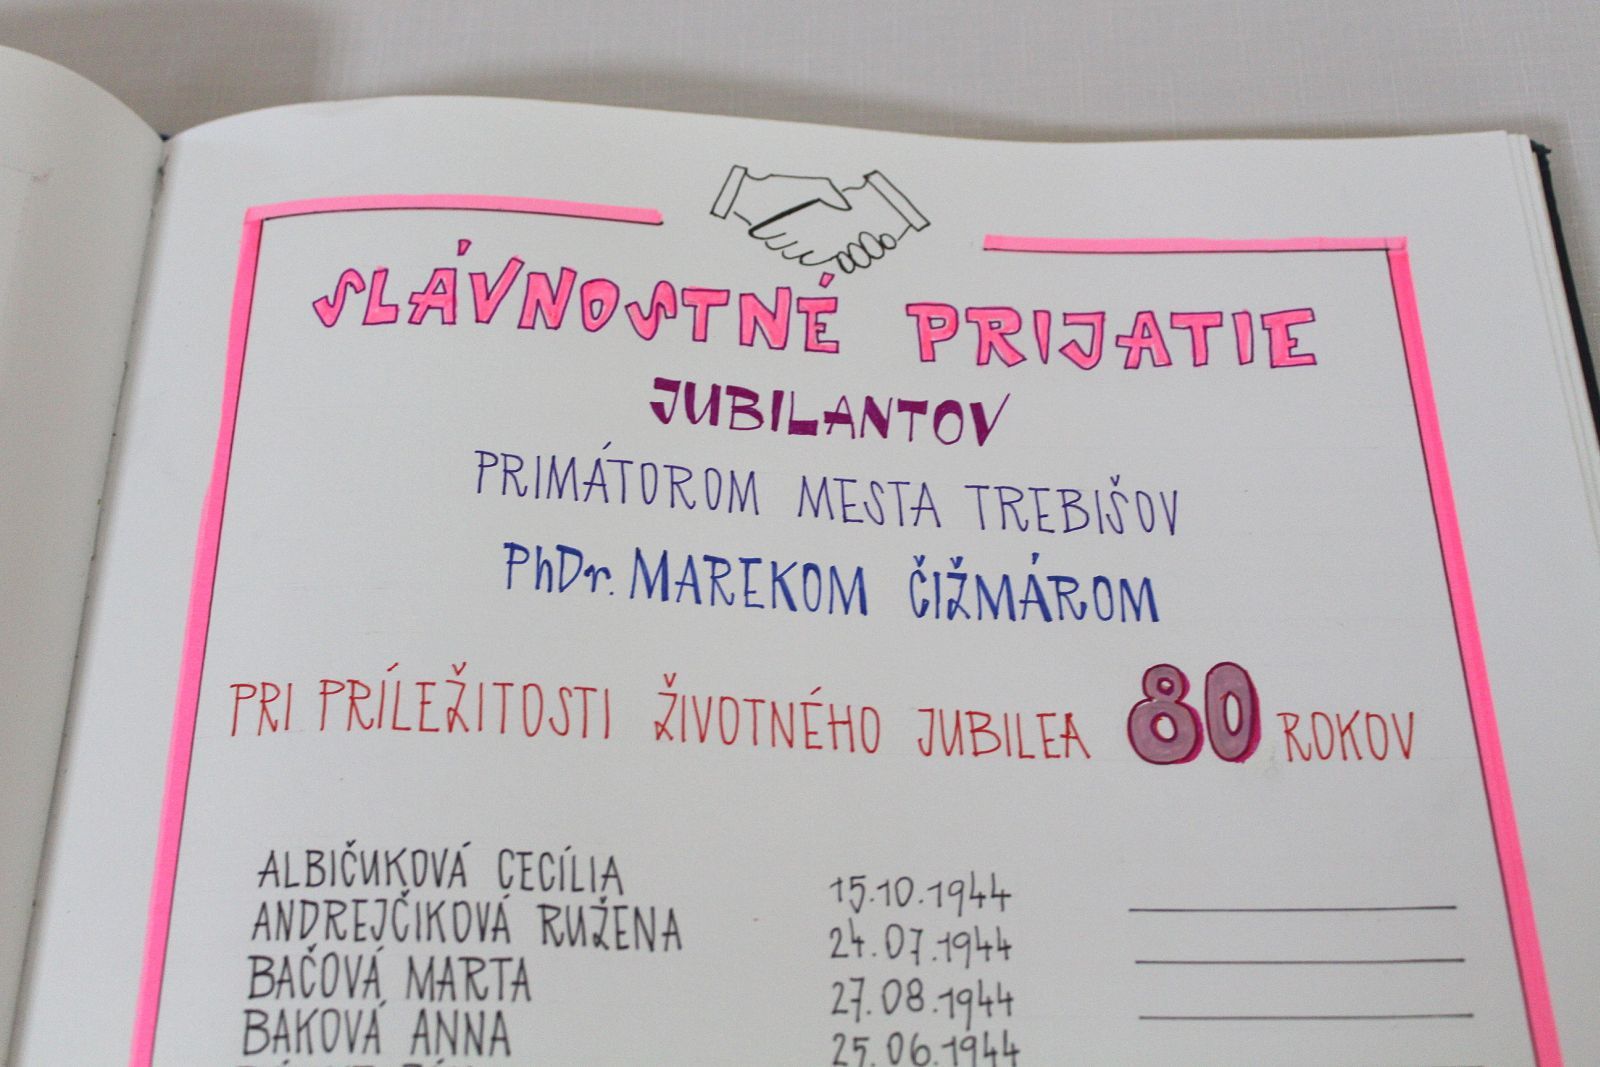 SLÁVNOSTNÉ PRIJATIE
JUBILANTOV
PRIMÁTOROM MESTA TREBIŠOV
PhDr. MAREKOM ČIŽMÁROM
PRI PRÍLEŽITOSTI ŽIVOTNÉHO JUBILEA 80 ROKOV
ALBIČUKOVÁ CECÍLIA 15.10.1944
ANDREJČIKOVÁ RUŽENA 24.07.1944
BAČOVÁ MARTA 27.08.1944
BAKOVÁ ANNA 25.06.1944